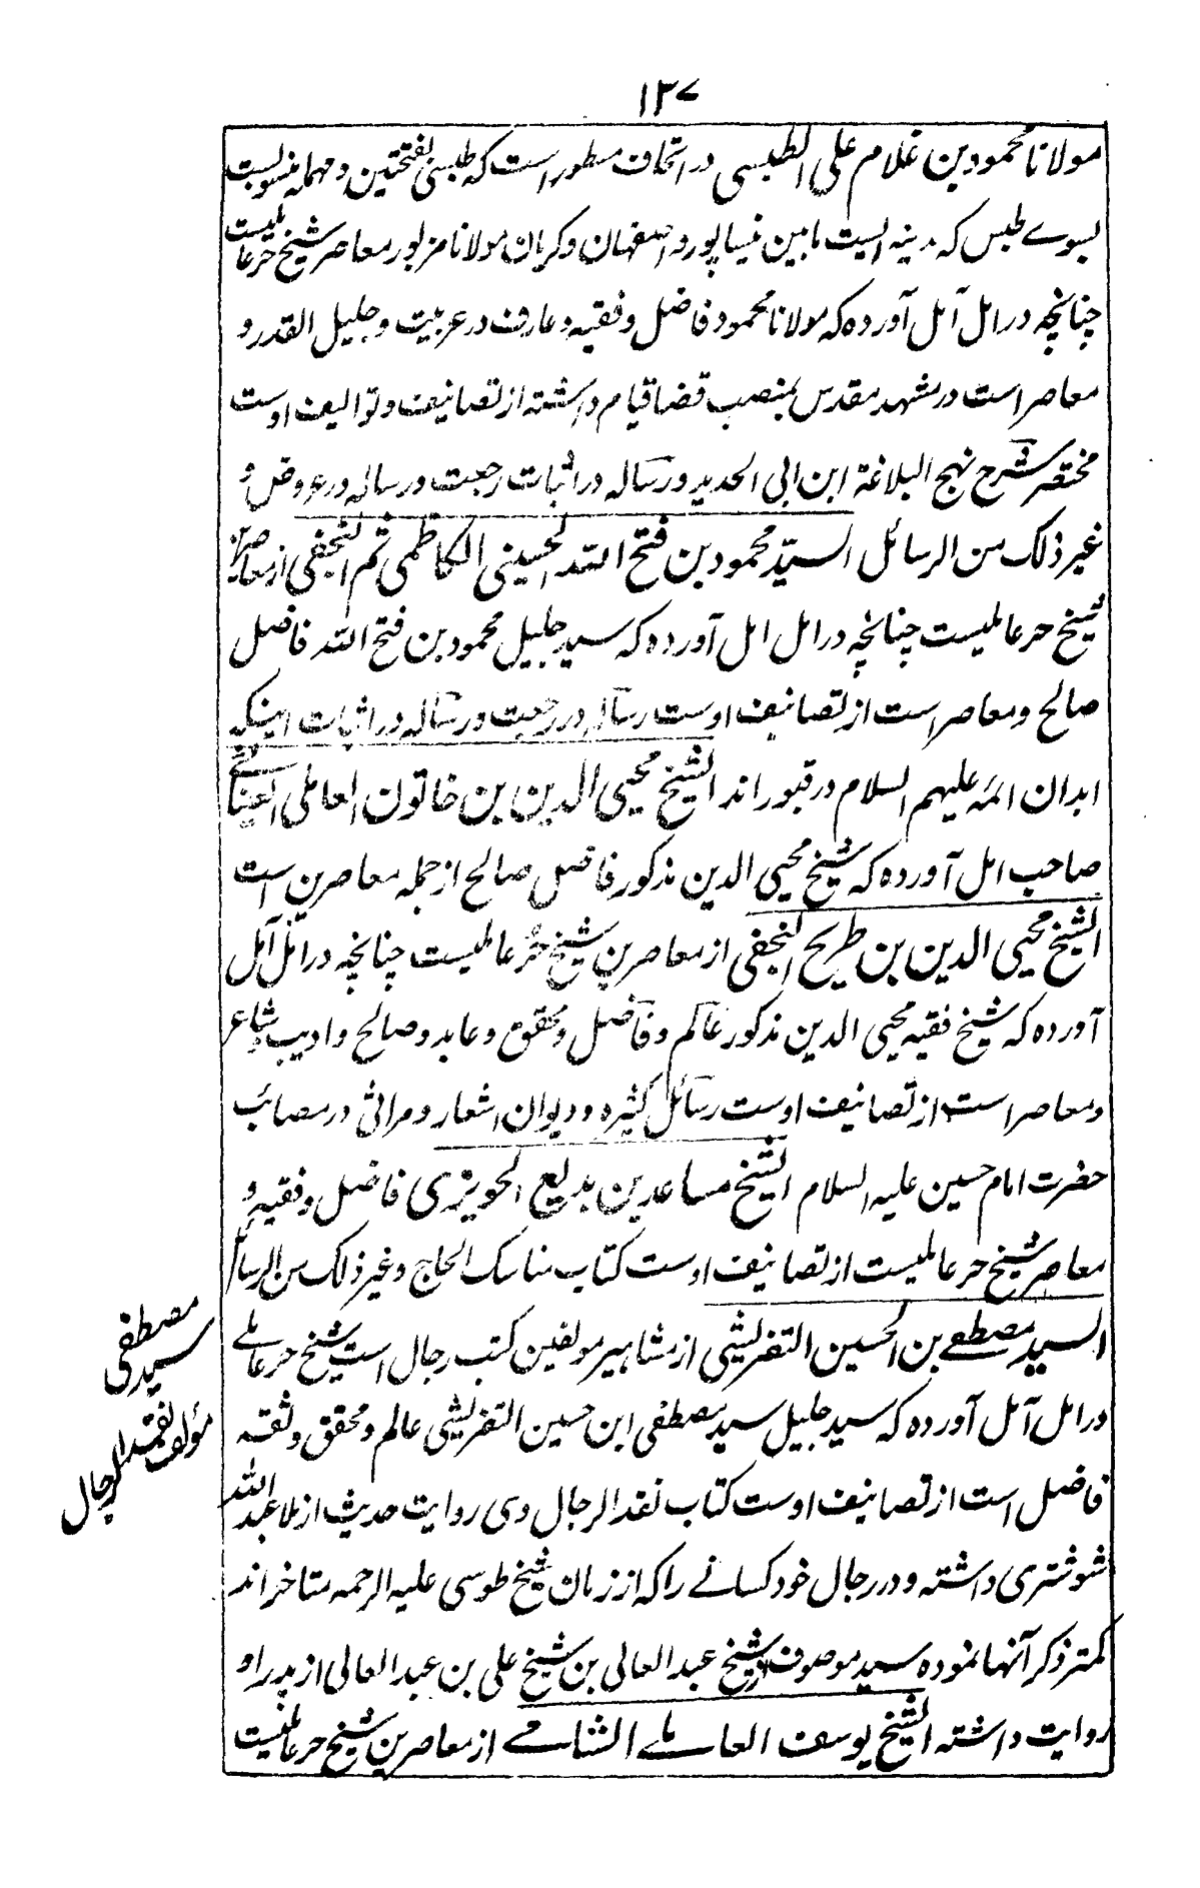 ۱۳۷
مولانا محمود بن غلام علی الطبسی در اتحاف مسطور است که طبسی بفتحتین و مهمله منسوبست
بسوے طبس که مدینه ایست مابین نیساپور و اصفهان و کرمان مولانا مزبور معاصر شیخ حر عاملیست
چنانچه در امل آمل آورده که مولانا محمود فاضل و فقیه و عارف در عربیت و جلیل القدر و
معاصر است در مشهد مقدس بمنصب قضا قیام داشته از تصانیف و توالیف اوست
مختصر شرح نهج البلاغة ابن ابی الحدید و رساله در اثبات رجعت و رساله در عروض و
غیر ذلک من الرسائل السیّد محمود بن فتح الله الحسینی الکاظمی ثم النجفی از معاصرین
شیخ حر عاملیست چنانچه در امل امل آورده که سید جلیل محمود بن فتح الله فاضل
صالح و معاصر است از تصانیف اوست رساله در رجعت و رساله در اثبات اینکه
ابدان ائمه علیهم السلام در قبور اند الشیخ محیی الدین بن خاتون العاملی العیناثے
صاحب امل آورده که شیخ محیی الدین مذکور فاضل صالح از جمله معاصرین است
الشیخ محیی الدین بن طریح النجفی از معاصرین شیخ حُر عاملیست چنانچه در امل آمل
آورده که شیخ فقیه محیی الدین مذکور عالم و فاضل و محقق و عابد و صالح و ادیب و شاعر
و معاصر است از تصانیف اوست رسائل کثیره و دیوان اشعار و مراثی در مصائب
حضرت امام حسین علیه السلام الشیخ مساعد بن بدیع الحویزی فاضل و فقیه و
معاصر شیخ حر عاملیست از تصانیف اوست کتاب مناسک الحاج و غیر ذلک من الرسائل
السید مصطفے بن الحسین التفریشی از مشاهیر مولفین کتب رجال است شیخ حر عاملے
در امل آمل آورده که سید جلیل سید مصطفی ابن حسین التفریشی عالم و محقق و ثقه
فاضل است از تصانیف اوست کتاب نقد الرجال وی روایت حدیث از ملا عبد الله
شوشتری داشته و در رجال خود کسانے را که از زمان شیخ طوسی علیه الرحمه متاخر اند
کمتر ذکر آنها نموده سید موصوف از شیخ عبد العالی بن شیخ علی بن عبد العالی از پدر او
روایت داشته الشیخ یوسف العاملے الشامے از معاصرین شیخ حر عاملیست
مصطفی
سیدی
مؤلف نقد الرجال